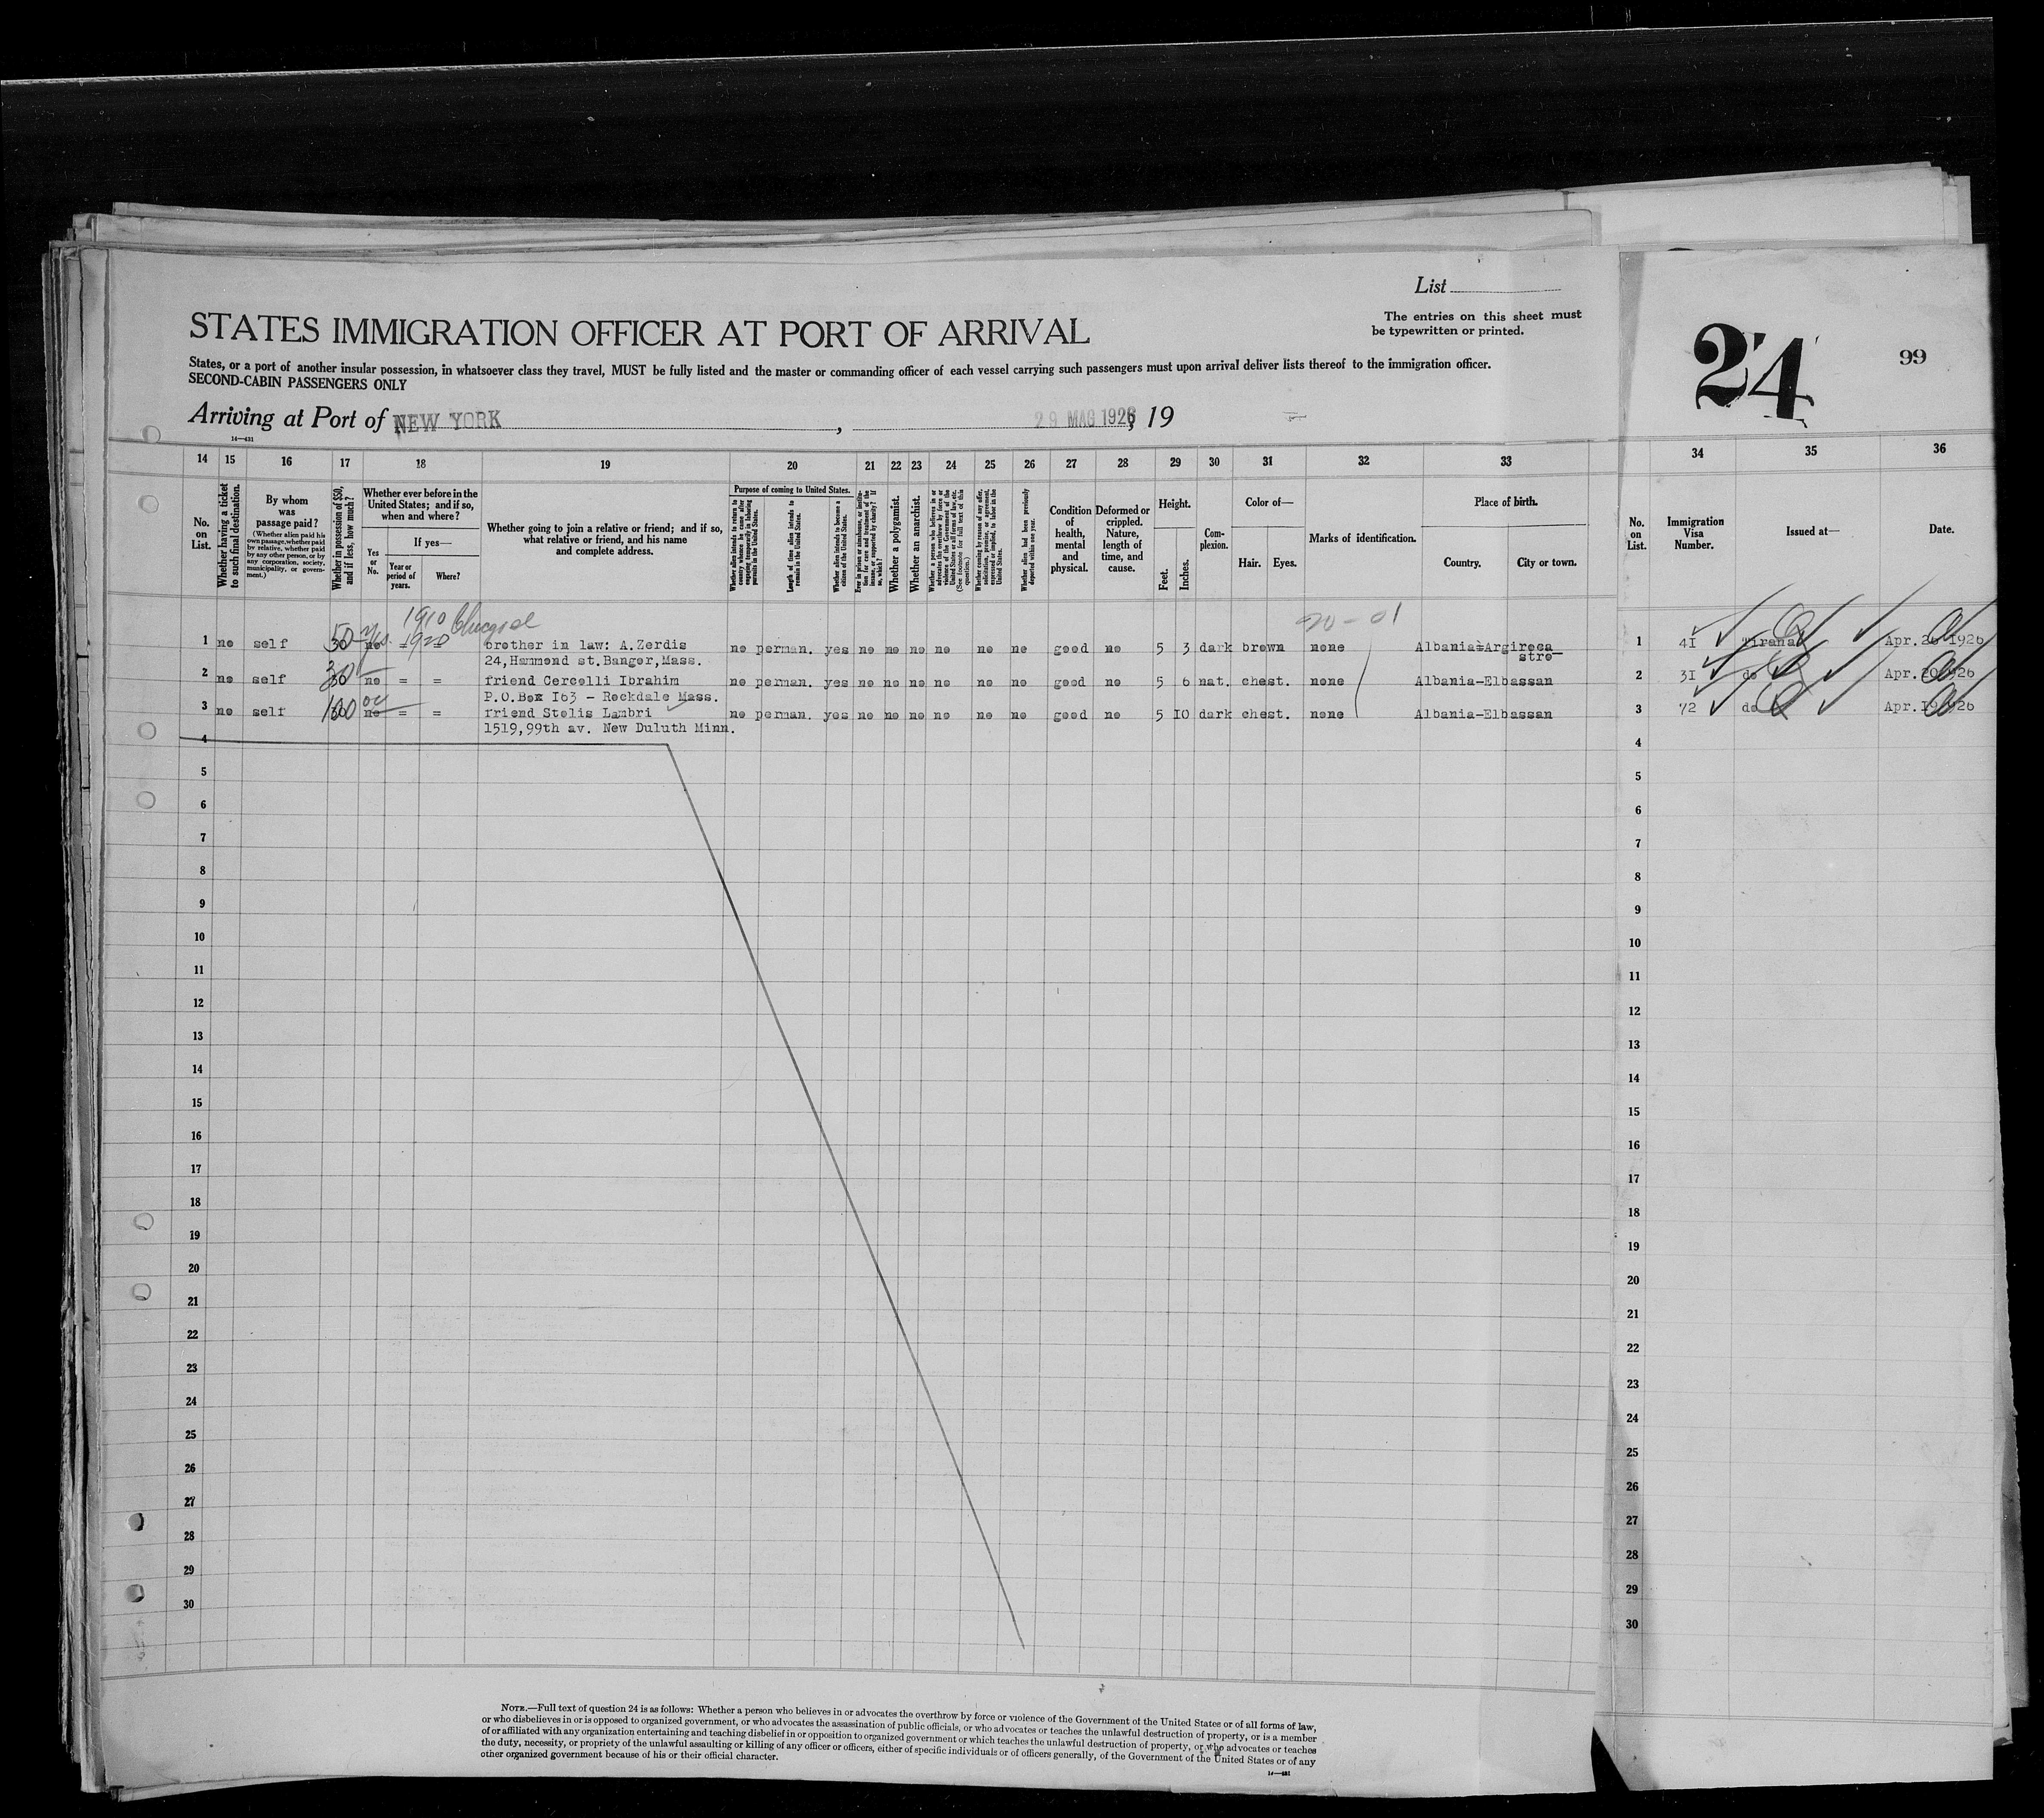 List
The entries on this sheet must
be typewritten or printed.
STATES IMMIGRATION OFFICER AT PORT OF ARRIVAL
States, or a port of another insular possession, in whatsoever class they travel, MUST be fully listed and the master or commanding officer of each vessel carrying such passengers must upon arrival deliver lists thereof to the immigration officer.
SECOND-CABIN PASSENGERS ONLY
Arriving at Port of NEW YORK , 29 MAG 1926, 19
14—431
24
99
14 15 16 17 18 19 20 21 22 23 24 25 26 27 28 29 30 31 32 33 34 35 36
No. on List.
Whether having a ticket to such final destination.
By whom was passage paid?
(Whether alien paid his own passage, whether paid by relative, whether paid by any other person, or by any corporation, society, municipality, or government.)
Whether in possession of $50, and if less, how much?
Whether ever before in the United States; and if so, when and where?
Yes or No.
If yes—
Year or period of years.
Where?
Whether going to join a relative or friend; and if so, what relative or friend, and his name and complete address.
Purpose of coming to United States.
Whether alien intends to return to country whence he came after engaging temporarily in laboring pursuits in the United States.
Length of time alien intends to remain in the United States.
Whether alien intends to become a citizen of the United States.
Ever in prison or almshouse, or institution for care and treatment of the insane, or supported by charity? If so, which?
Whether a polygamist.
Whether an anarchist.
Whether a person who believes in or advocates the overthrow by force or violence of the Government of the United States or all forms of law, etc. (See footnote for full text of this question.)
Whether coming by reason of any offer, solicitation, promise, or agreement, expressed or implied, to labor in the United States.
Whether alien had been previously deported within one year.
Condition of health, mental and physical.
Deformed or crippled. Nature, length of time, and cause.
Height.
Feet. Inches.
Complexion.
Color of—
Hair. Eyes.
Marks of identification.
Place of birth.
Country. City or town.
No. on List.
Immigration Visa Number.
Issued at—
Date.
1910 Chicago
20-01
1 no self 50 Yes 1920 brother in law: A.Zerdis no perman. yes no no no no no no good no 5 3 dark brown none Albania=Argiroca 1 41 Tirana Apr.26 1926
24,Hammond st.Bangor,Mass. stro
2 no self 30 no = = friend Cercelli Ibrahim no perman. yes no no no no no no good no 5 6 nat. chest. none Albania-Elbassan 2 31 do Apr.20 1926
P.O.Box 163 - Rockdale Mass.
3 no self 100 no = = friend Stolis Lambri no perman. yes no no no no no no good no 5 10 dark chest. none Albania-Elbassan 3 72 do Apr.19 1926
1519,99th av. New Duluth Minn.
4 4
5 5
6 6
7 7
8 8
9 9
10 10
11 11
12 12
13 13
14 14
15 15
16 16
17 17
18 18
19 19
20 20
21 21
22 22
23 23
24 24
25 25
26 26
27 27
28 28
29 29
30 30
NOTE.—Full text of question 24 is as follows: Whether a person who believes in or advocates the overthrow by force or violence of the Government of the United States or of all forms of law,
or who disbelieves in or is opposed to organized government, or who advocates the assassination of public officials, or who advocates or teaches the unlawful destruction of property, or is a member
of or affiliated with any organization entertaining and teaching disbelief in or opposition to organized government or which teaches the unlawful destruction of property, or who advocates or teaches
the duty, necessity, or propriety of the unlawful assaulting or killing of any officer or officers, either of specific individuals or of officers generally, of the Government of the United States or of any
other organized government because of his or their official character.
14—431